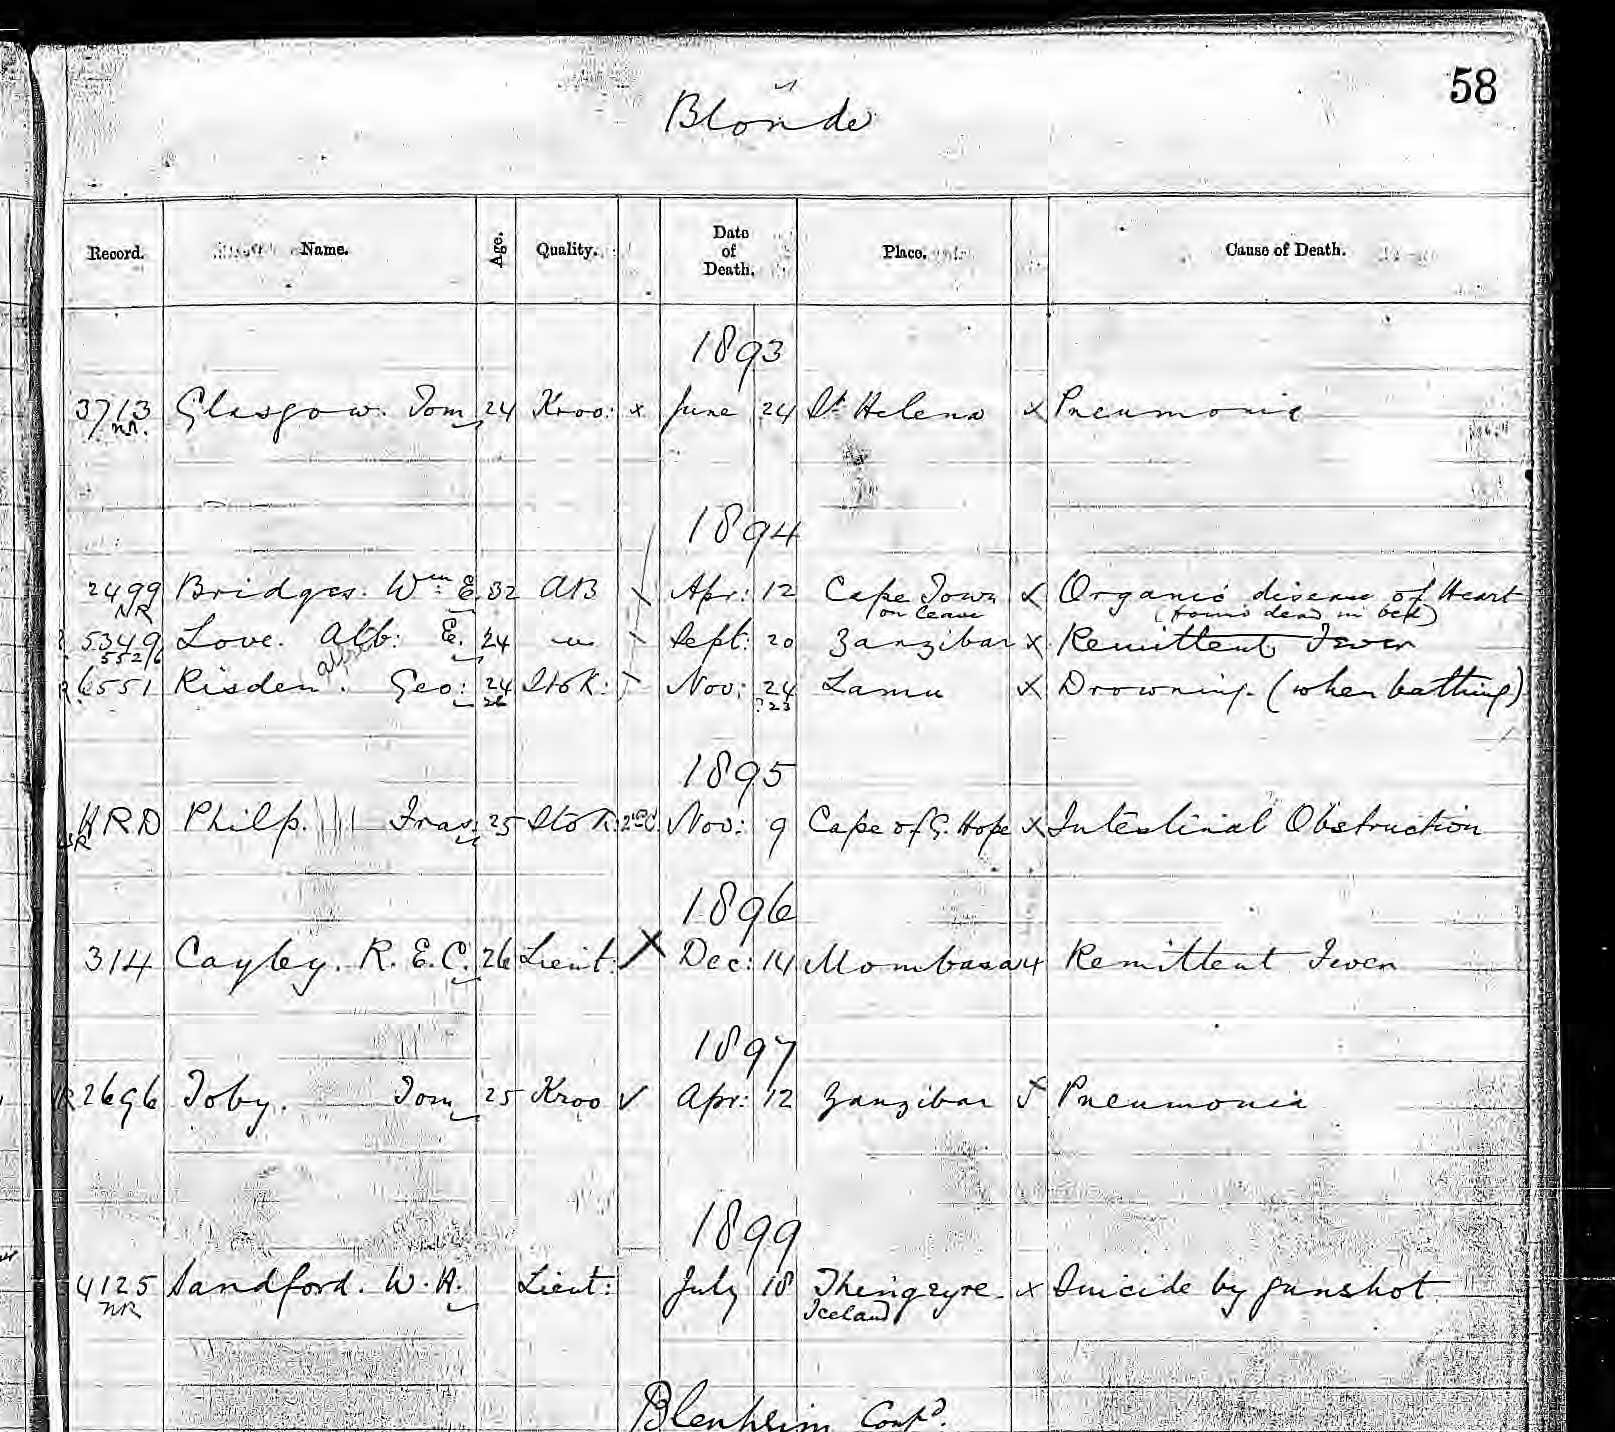 58
Blonde
Record. Name. Age. Quality. Date of Death. Place. Cause of Death.
1893
3713 Glasgow. Tom 24 Kroo: x June 24 St Helena x Pneumonia
NR.
1894
2499 Bridges. Wm E. 32 AB x Apr: 12 Cape Town x Organic disease of Heart
NR on leave (found dead in bed)
5349 Love. Alb: E. 24 " x Sept: 20 Zanzibar x Remittent Fever
552/6 Alfred
R 6551 Risden. Geo: 24 Stok: x Nov: 24 Lamu x Drowning. (when bathing)
26 ?23
1895
HRD Philp. Fras. 25 Stok: 2nd C. Nov: 9 Cape of G. Hope x Intestinal Obstruction
NR
1896
314 Cayley. R. E. C. 26 Lieut: x Dec: 14 Mombasa x Remittent Fever
1897
R 2696 Toby. Tom 25 Kroo ✓ Apr: 12 Zanzibar x Pneumonia
1899
4125 Sandford. W. A. Lieut: July 18 Thingeyre. x Suicide by gunshot
NR Iceland
Blenheim Contd.